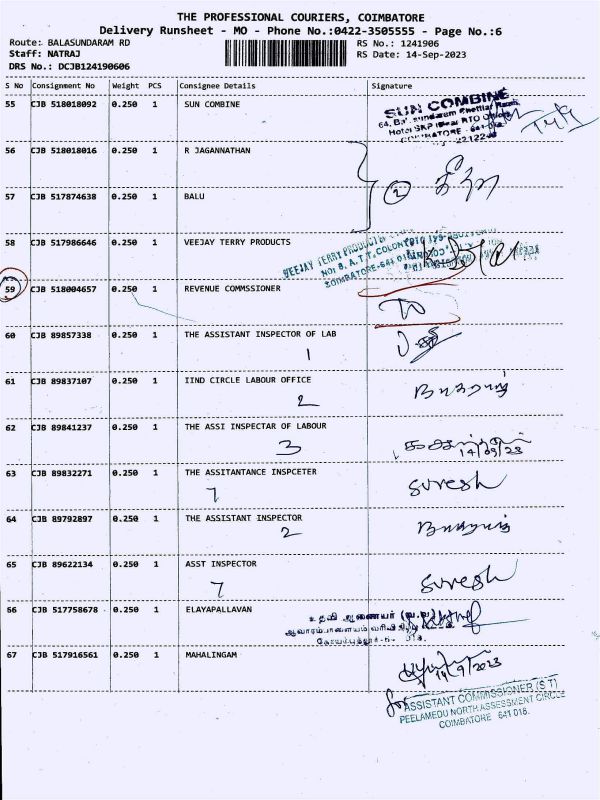 THE PROFESSIONAL COURIERS, COIMBATORE
Delivery Runsheet - MO - Phone No.:0422-3505555 - Page No.:6
Route: BALASUNDARAM RD
RS No.: 1241906
Staff: NATRAJ
RS Date: 14-Sep-2023
DRS No.: DCJB124190606
S No Consignment No Weight PCS Consignee Details Signature
55 CJB 518018092 0.250 1 SUN COMBINE
SUN COMBINE
56 CJB 518018016 0.250 1 R JAGANNATHAN
2
57 CJB 517874638 0.250 1 BALU
58 CJB 517986646 0.250 1 VEEJAY TERRY PRODUCTS
59 CJB 518004657 0.250 1 REVENUE COMMSSIONER
60 CJB 89857338 0.250 1 THE ASSISTANT INSPECTOR OF LAB
1
61 CJB 89837107 0.250 1 IIND CIRCLE LABOUR OFFICE
2
62 CJB 89841237 0.250 1 THE ASSI INSPECTAR OF LABOUR
3
14/09/23
63 CJB 89832271 0.250 1 THE ASSITANTANCE INSPCETER
7 Suresh
64 CJB 89792897 0.250 1 THE ASSISTANT INSPECTOR
2
65 CJB 89622134 0.250 1 ASST INSPECTOR
7 Suresh
66 CJB 517758678 0.250 1 ELAYAPALLAVAN
உதவி ஆணையர்
67 CJB 517916561 0.250 1 MAHALINGAM
14/9/2023
for ASSISTANT COMMISSIONER (S T)
PEELAMEDU NORTH ASSESSMENT CIRCLE
COIMBATORE 641 018.